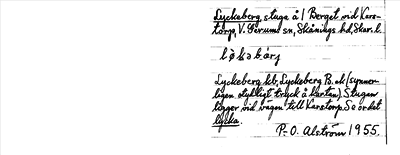 Lyckeberg, stuga å 1 Berget vid Kars-
torp, V. Gerums sn, Skånings hd, Skar. l.
Lyckeberg kb, Lyckeberg B. ek (synner-
ligen otydligt tryck å kartan). Stugan
ligger vid vägen till Karstorp. Se ordet
lycka.
P. O. Alström 1955.